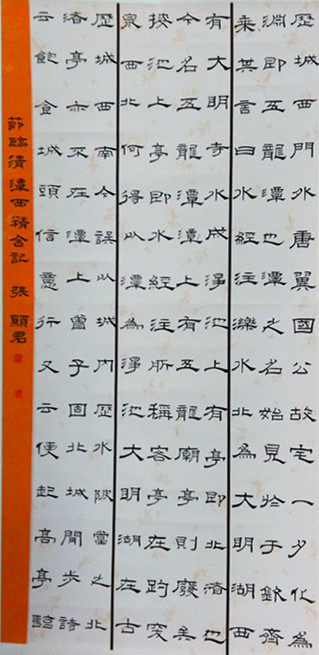 歷城西門外唐翼國公故宅一夕化為
淵即五龍潭也潭之名始見於于欽齊
乘其言曰水經注濼水北為大明湖西
有大明寺水成淨池上有亭即北渚也
今名五龍潭潭上有五龍廟亭則廢矣
按池上亭即水經注所稱客亭在趵突
泉西北何得以潭為淨池大明湖在古
歷城西南今誤以城內歷水陂當之北
渚亭亦不在潭上曾子固北城閒步詩
云飽食城頭信意行又云便起高亭臨
節臨清潭西精舍記 張顯君